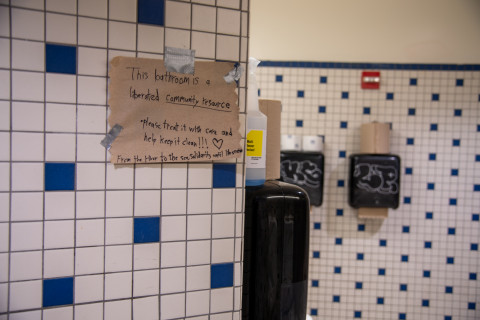 This bathroom is a
liberated community resource
·please treat it with care and
help keep it clean!!! ♡
From the River to the sea, Solidarity until